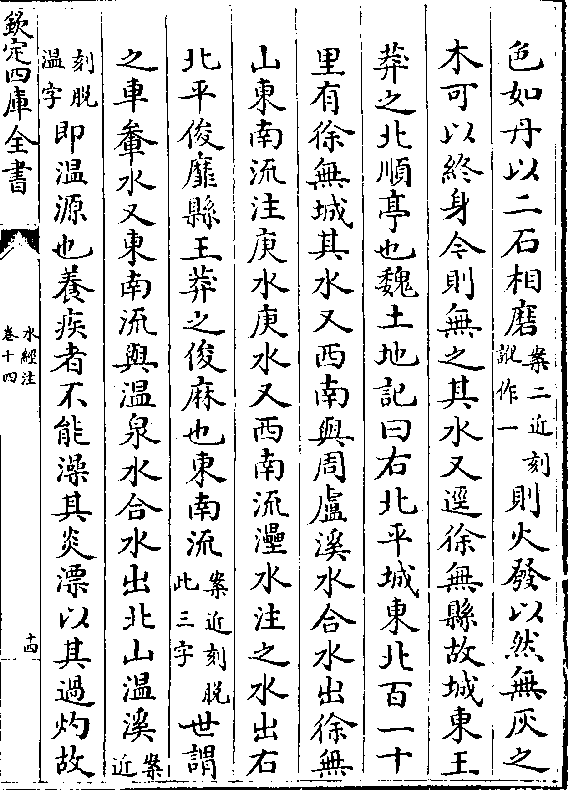 色如丹以二石相磨案二近刻訛作一則火發以然無灰之
木可以終身今則無之其水又逕徐無縣故城東王
莽之北順亭也魏土地記曰右北平城東北百一十
里有徐無城其水又西南與周盧溪水合水出徐無
山東南流注庚水庚水又西南流灅水注之水出右
北平俊靡縣王莽之俊麻也東南流案近刻脱此三字世謂
之車軬水又東南流與温泉水合水出北山温溪案近
刻脱温字即温源也養疾者不能澡其炎漂以其過灼故
欽定四庫全書
水經注
卷十四
十四